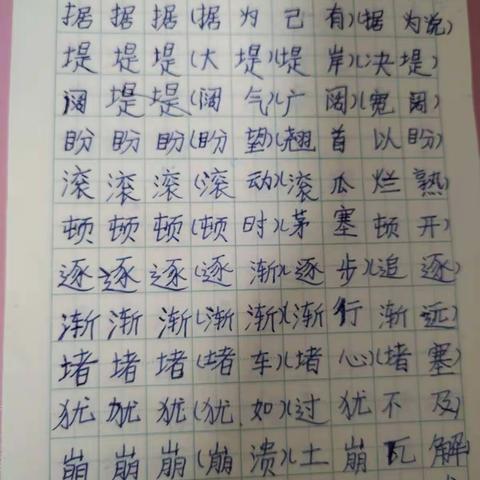 据据据(据为己有)(据为说)
堤堤堤(大堤)(堤岸)(决堤)
阔堤堤(阔气)(广阔)(宽阔)
盼盼盼(盼望)(翘首以盼)
滚滚滚(滚动)(滚瓜烂熟)
顿顿顿(顿时)(茅塞顿开)
逐逐逐(逐渐)(逐步)(追逐)
渐渐渐(渐渐)(渐行渐远)
堵堵堵(堵车)(堵心)(堵塞)
犹犹犹(犹如)(过犹不及)
崩崩崩(崩溃)(土崩瓦解